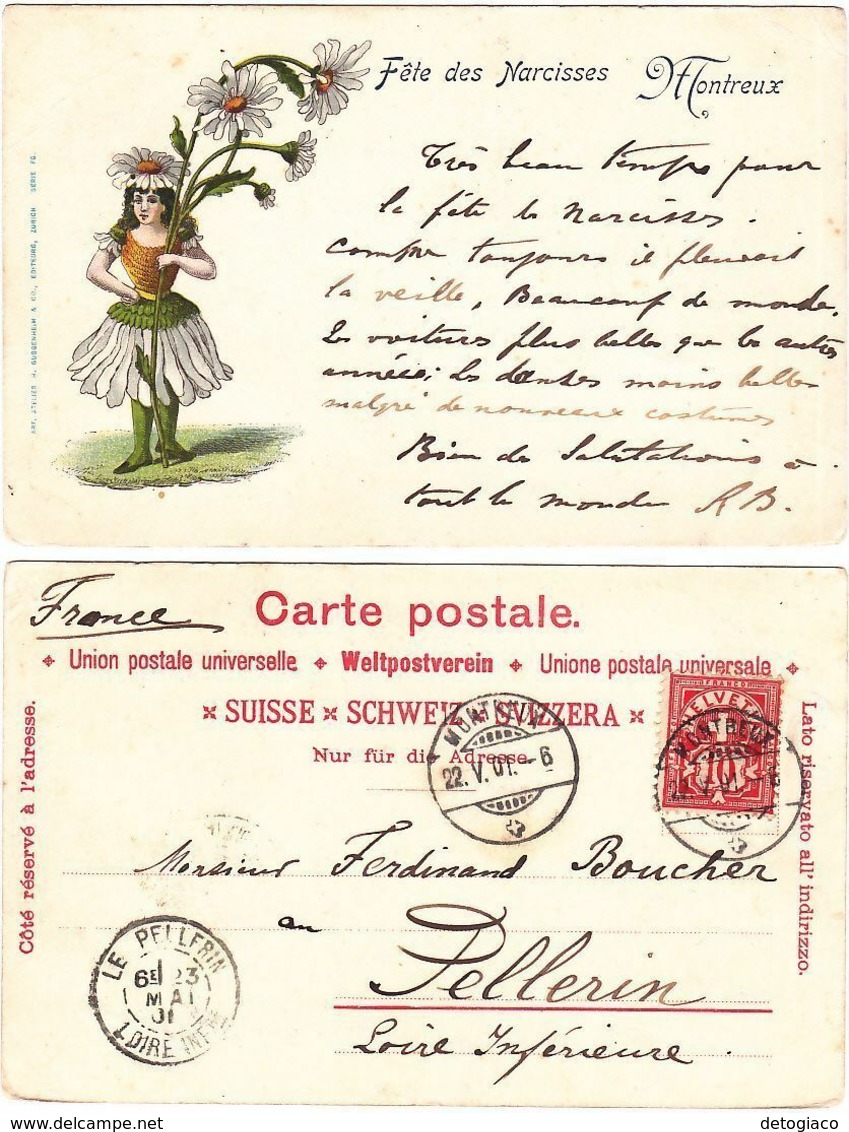 Fête des Narcisses Montreux
ART. ATELIER H. GUGGENHEIM & CO., EDITEURS, ZURICH SÉRIE FG.
Très beau temps pour
la fête de Narcisses.
Comme toujours il pleuvait
la veille, Beaucoup de monde,
Les voitures plus belles que les autres
années; les danses moins belles
malgré de nouveaux costumes
Bien de Salutations à
tout le monde RB.
France
Carte postale.
Union postale universelle Weltpostverein Unione postale universale
SUISSE SCHWEIZ SVIZZERA
Nur für die Adresse.
Côté réservé à l'adresse.
Lato riservato all' indirizzo.
FRANCO
HELVETIA
10
MONTREUX
22.V.01.-6
MONTREUX
Monsieur Ferdinand Boucher
au
Pellerin
Loire Inférieure.
LE PELLERIN
6E 23
MAI
01
LOIRE INFRE
delcampe.net
detogiaco